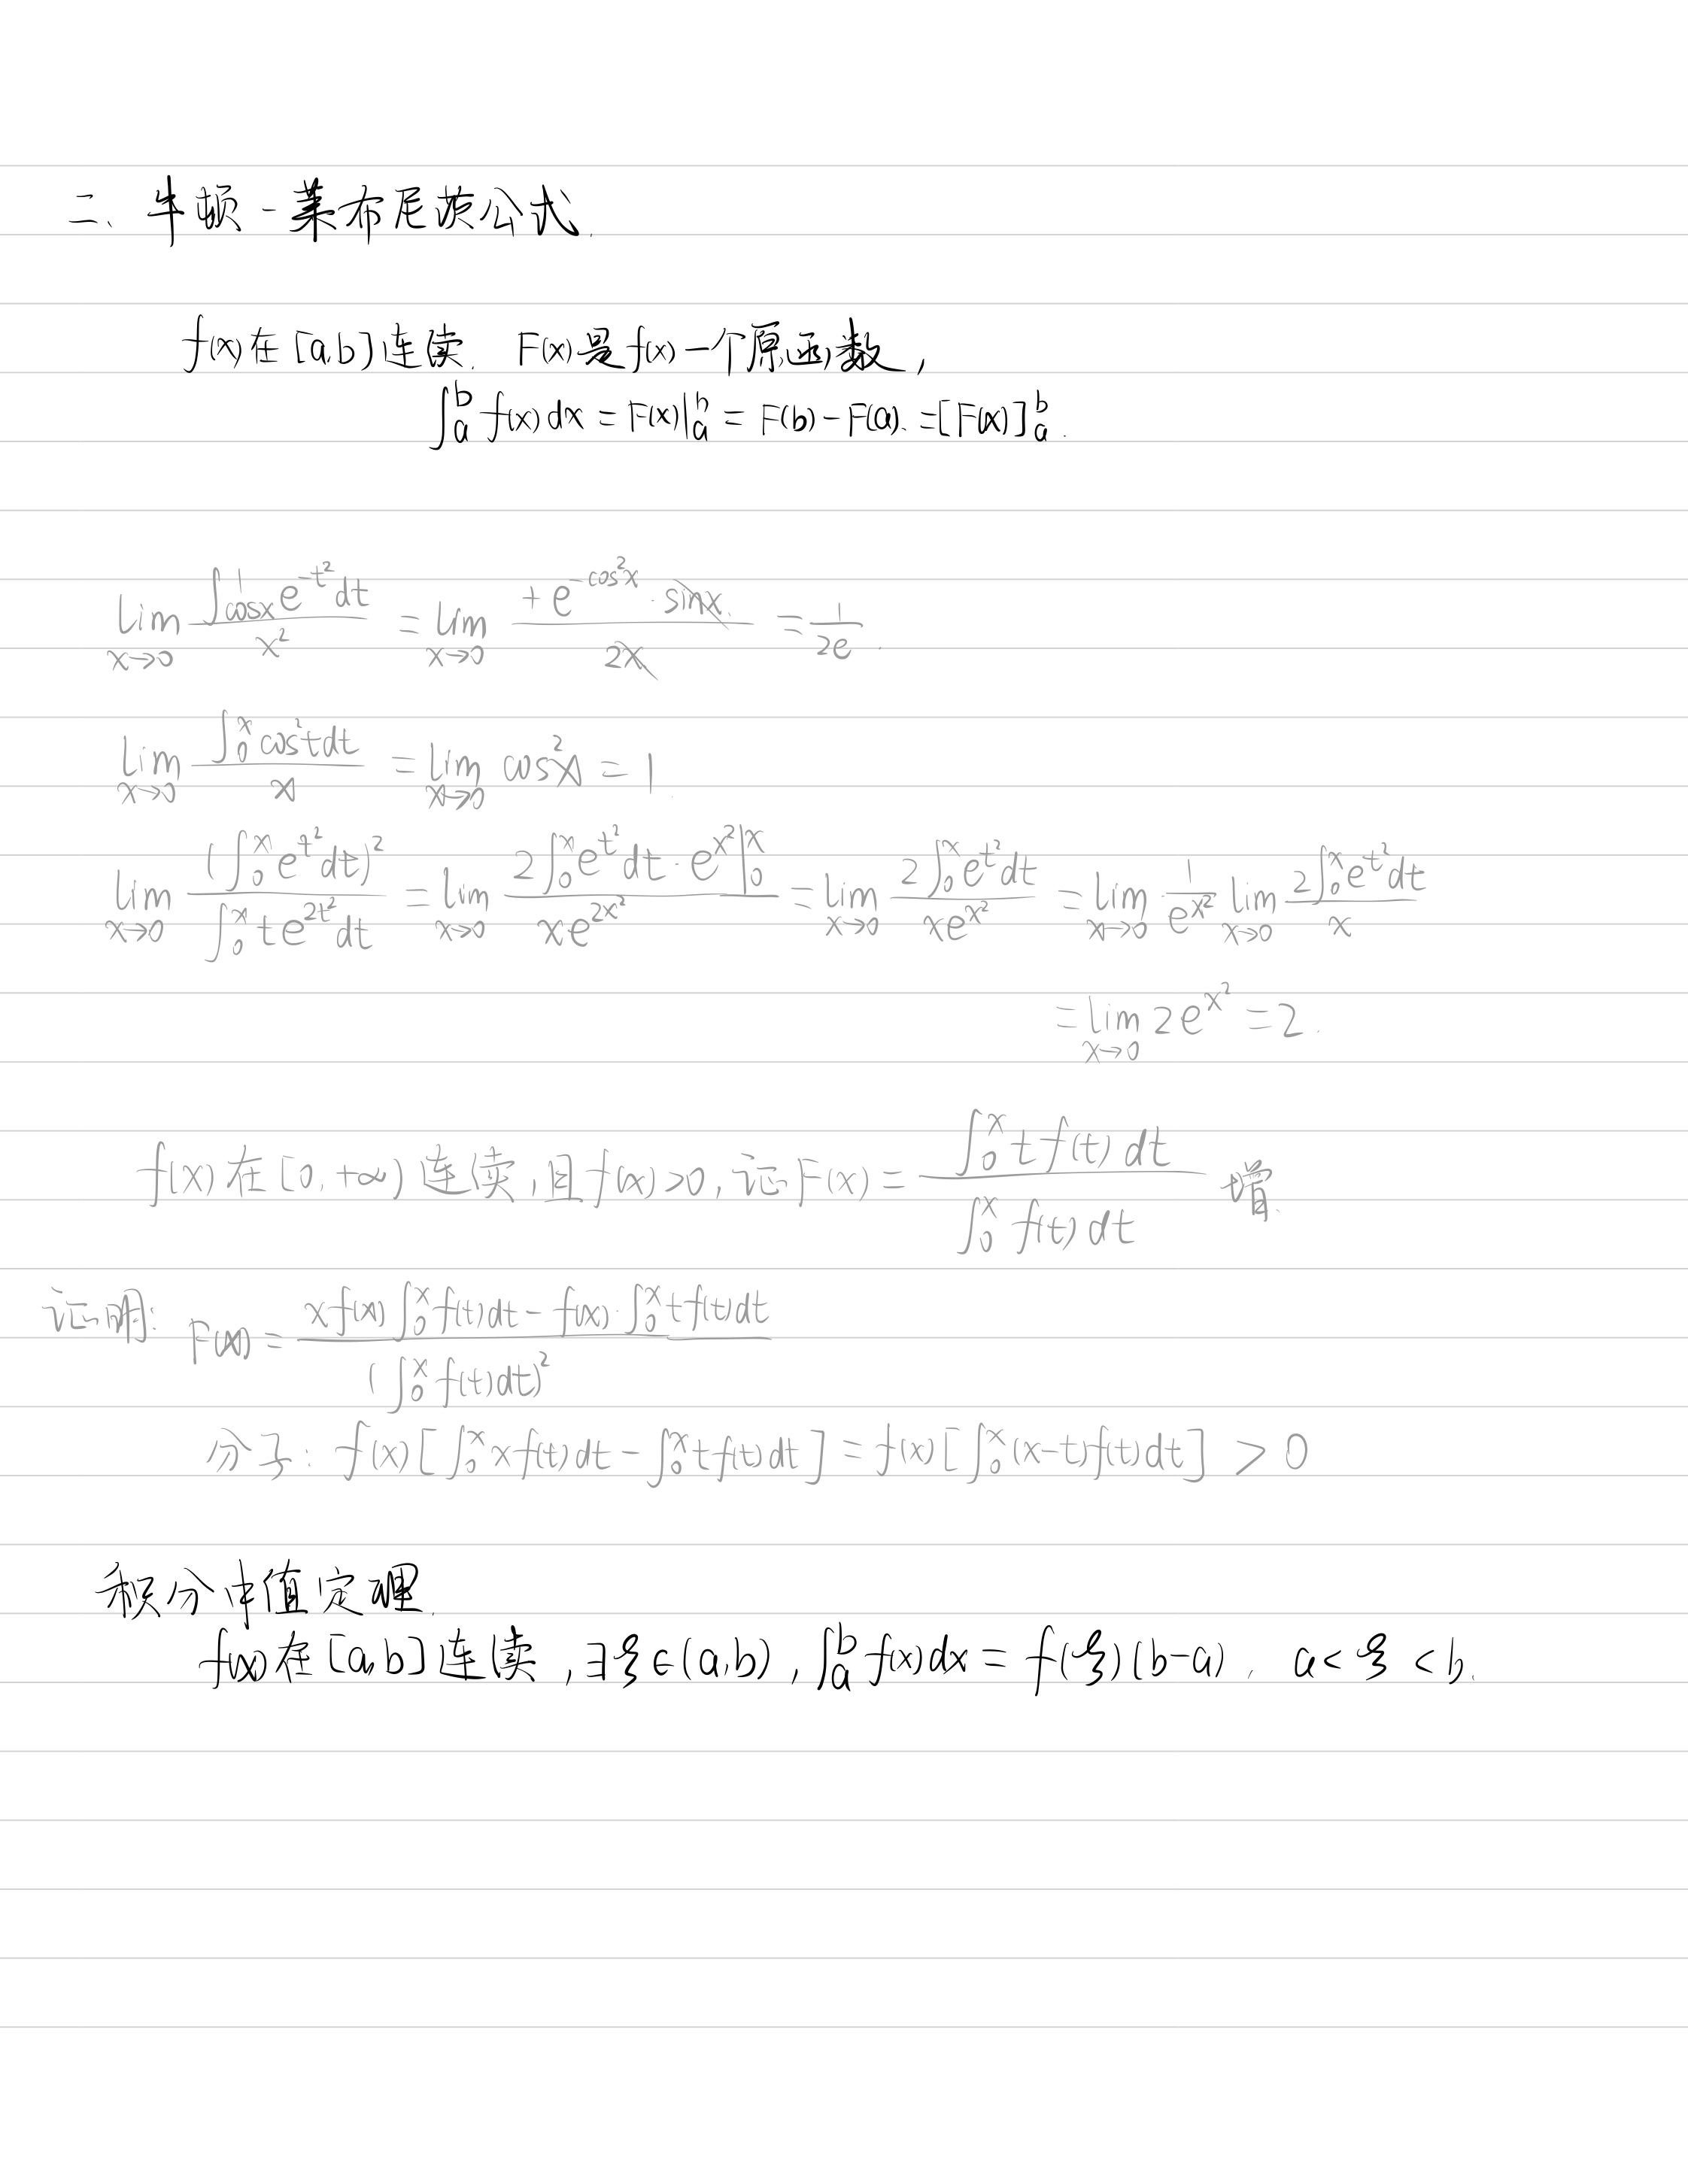 二、牛顿-莱布尼茨公式.
f(x)在[a,b]连续. F(x)是f(x)一个原函数,
∫_a^b f(x)dx = F(x)|_a^b = F(b)-F(a). =[F(x)]_a^b.
lim_{x→0} \frac{∫_{cosx}^1 e^{-t^2}dt}{x^2} = lim_{x→0} \frac{+e^{-cos^2x}·sinx.}{2x} = \frac{1}{2e}.
lim_{x→0} \frac{∫_0^x cos^2tdt}{x} = lim_{x→0} cos^2x = 1.
lim_{x→0} \frac{(∫_0^x e^{t^2}dt)^2}{∫_0^x te^{2t^2}dt} = lim_{x→0} \frac{2∫_0^x e^{t^2}dt·e^{x^2}|_0^x}{xe^{2x^2}} = lim_{x→0} \frac{2∫_0^x e^{t^2}dt}{xe^{x^2}} = lim_{x→0} \frac{1}{e^{x^2}} lim_{x→0} \frac{2∫_0^x e^{t^2}dt}{x}
= lim_{x→0} 2e^{x^2} = 2.
f(x)在[0,+∞)连续,且f(x)>0,证F(x)= \frac{∫_0^x tf(t)dt}{∫_0^x f(t)dt} 增.
证明: F(x) = \frac{xf(x)∫_0^x f(t)dt - f(x)·∫_0^x tf(t)dt}{(∫_0^x f(t)dt)^2}
分子: f(x)[∫_0^x xf(t)dt - ∫_0^x tf(t)dt] = f(x)[∫_0^x (x-t)f(t)dt] > 0
积分中值定理.
f(x)在[a,b]连续,∃ξ∈(a,b), ∫_a^b f(x)dx = f(ξ)(b-a), a<ξ<b.